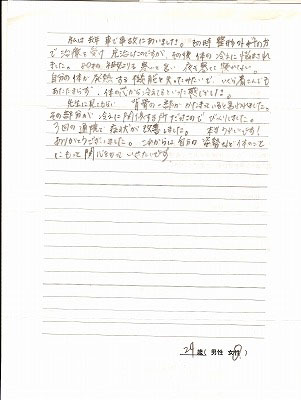 私は昨年車で事故にあいました。当時整形外科の方
で治療を受け完治したのですが、その後体の冷えに悩まされ
ました。80才の祖母よりも寒いと言い夜も寒くて寝れない。
自分の体が発熱する機能を失っていたみたいで、いくら着こんでも
あたたまらず、体の芯から冷えるといった感じでした。
先生に見てもらい 背骨の一部がかたまっていると言われました。
その部分が冷えに関係する所だったのでびっくりしました。
3回の通院で症状が改善しました。 本当うれしいです!
ありがとうございました。これからは毎日の姿勢など体のこと
にもっと関心をもっていきたいです
24歳(男性 女性)